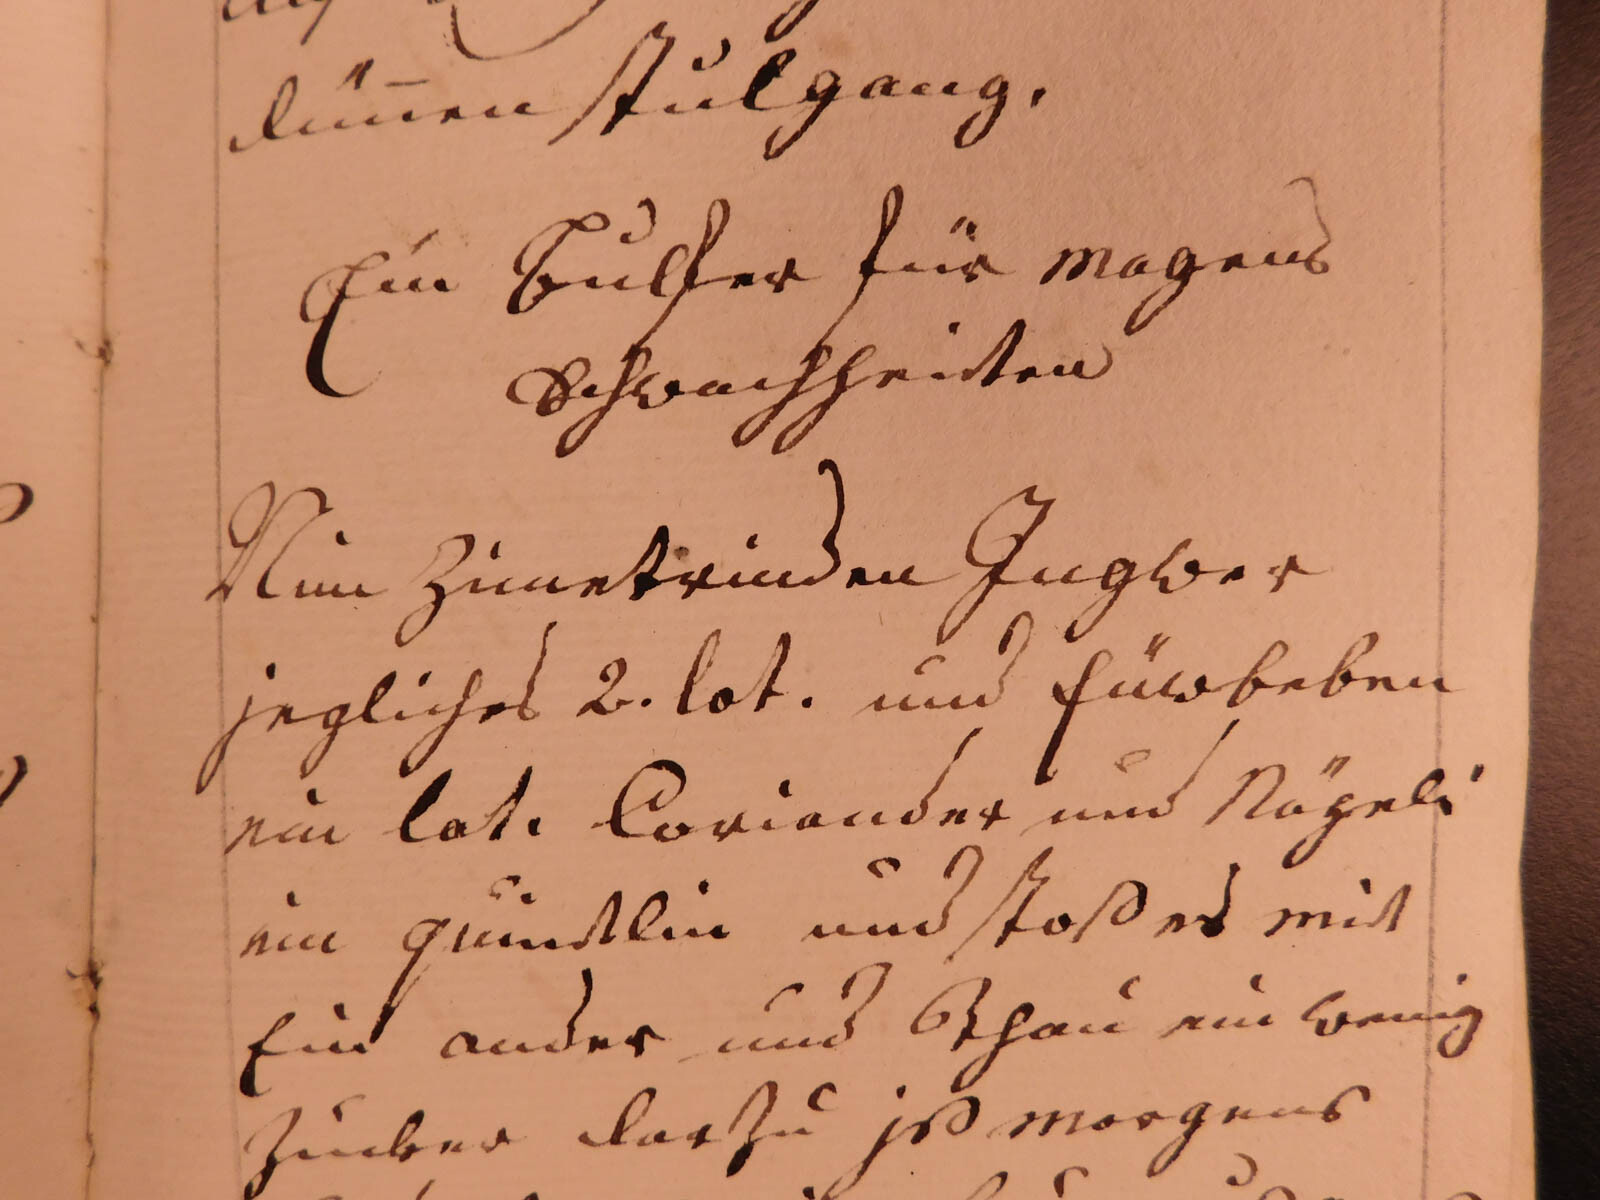 dün̄en stulgang.
Ein Bulfer für magens
Schwachheiten
Nim Zimetrinden Ingwer
jegliches 2. lot. und
ein lot. Coriander und Nägeli
ein quintlin und stoß es mit
Ein ander und thau ein wenig
Zucker dar Zu jß morgens